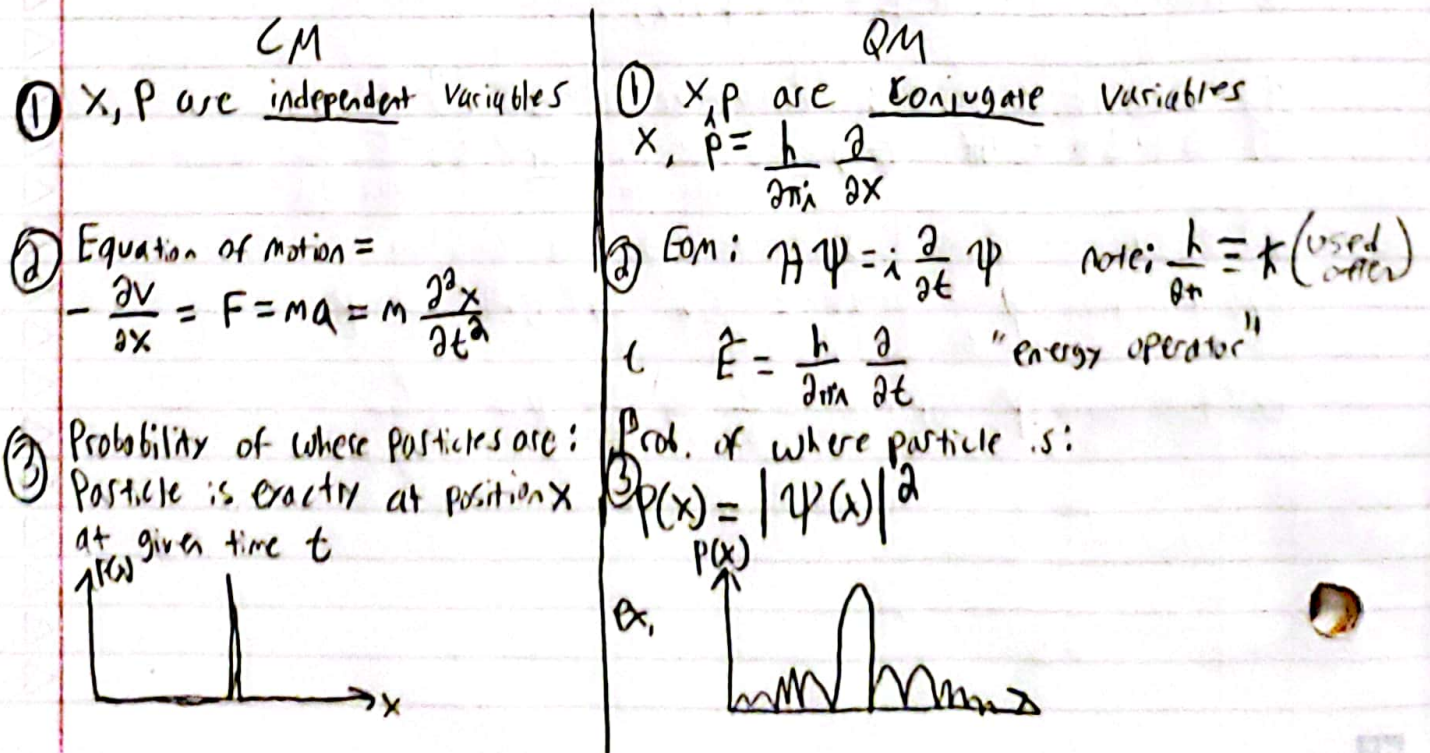 CM
① X, P are independent variables
② Equation of motion =
- ∂V/∂x = F = ma = m ∂²x/∂t²
③ Probability of where particles are:
Particle is exactly at position X
at given time t
P(x)
x
QM
① X, p are conjugate variables
X, p̂ = h/2πi ∂/∂x
② EOM: Hψ = i ∂/∂t ψ note: h/2π ≡ ħ (used often)
t Ê = h/2πi ∂/∂t "energy operator"
Prob. of where particle is:
③ P(x) = |ψ(x)|²
P(x)
ex.